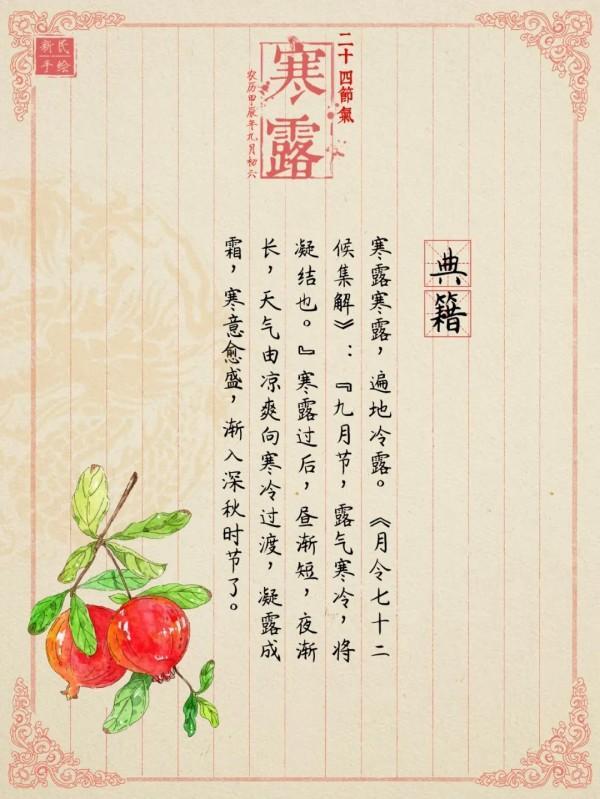 新民
手绘
二十四節氣
寒露
农历甲辰年九月初六
典籍
寒露寒露，遍地冷露。《月令七十二
候集解》：『九月节，露气寒冷，将
凝结也。』寒露过后，昼渐短，夜渐
长，天气由凉爽向寒冷过渡，凝露成
霜，寒意愈盛，渐入深秋时节了。